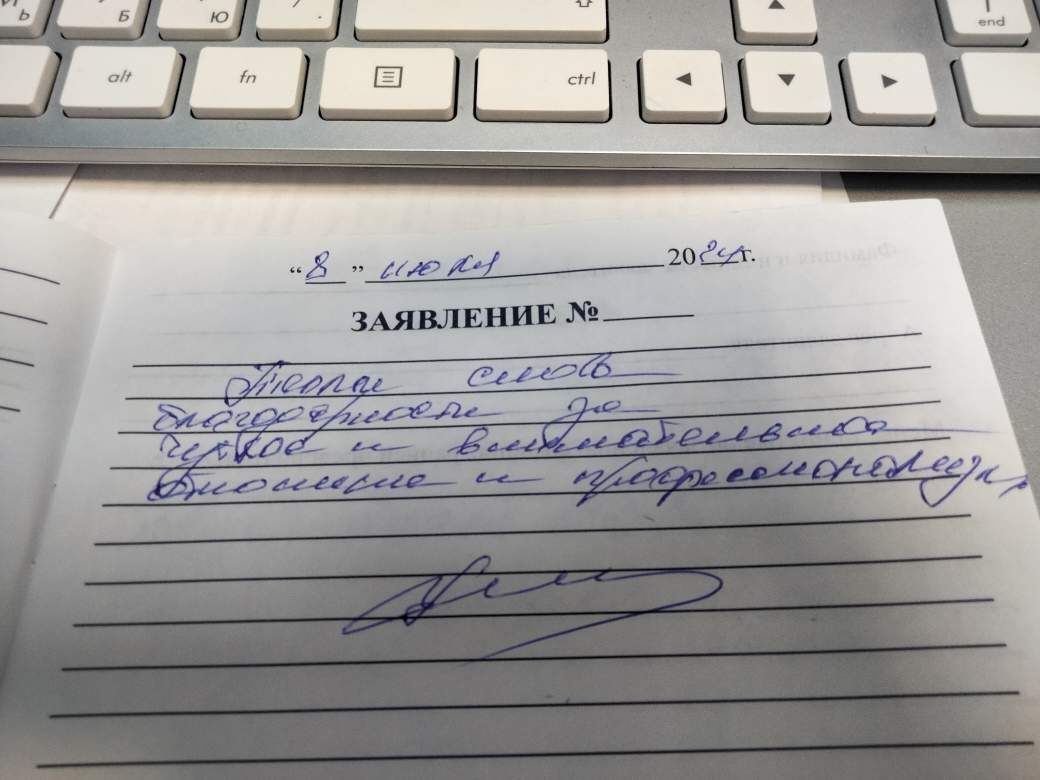 Ь Б Ю / .
end
alt fn ctrl
“8” июля 2024г.
ЗАЯВЛЕНИЕ №
слова
благодарности за
чуткое и внимательное
отношение и профессионализм